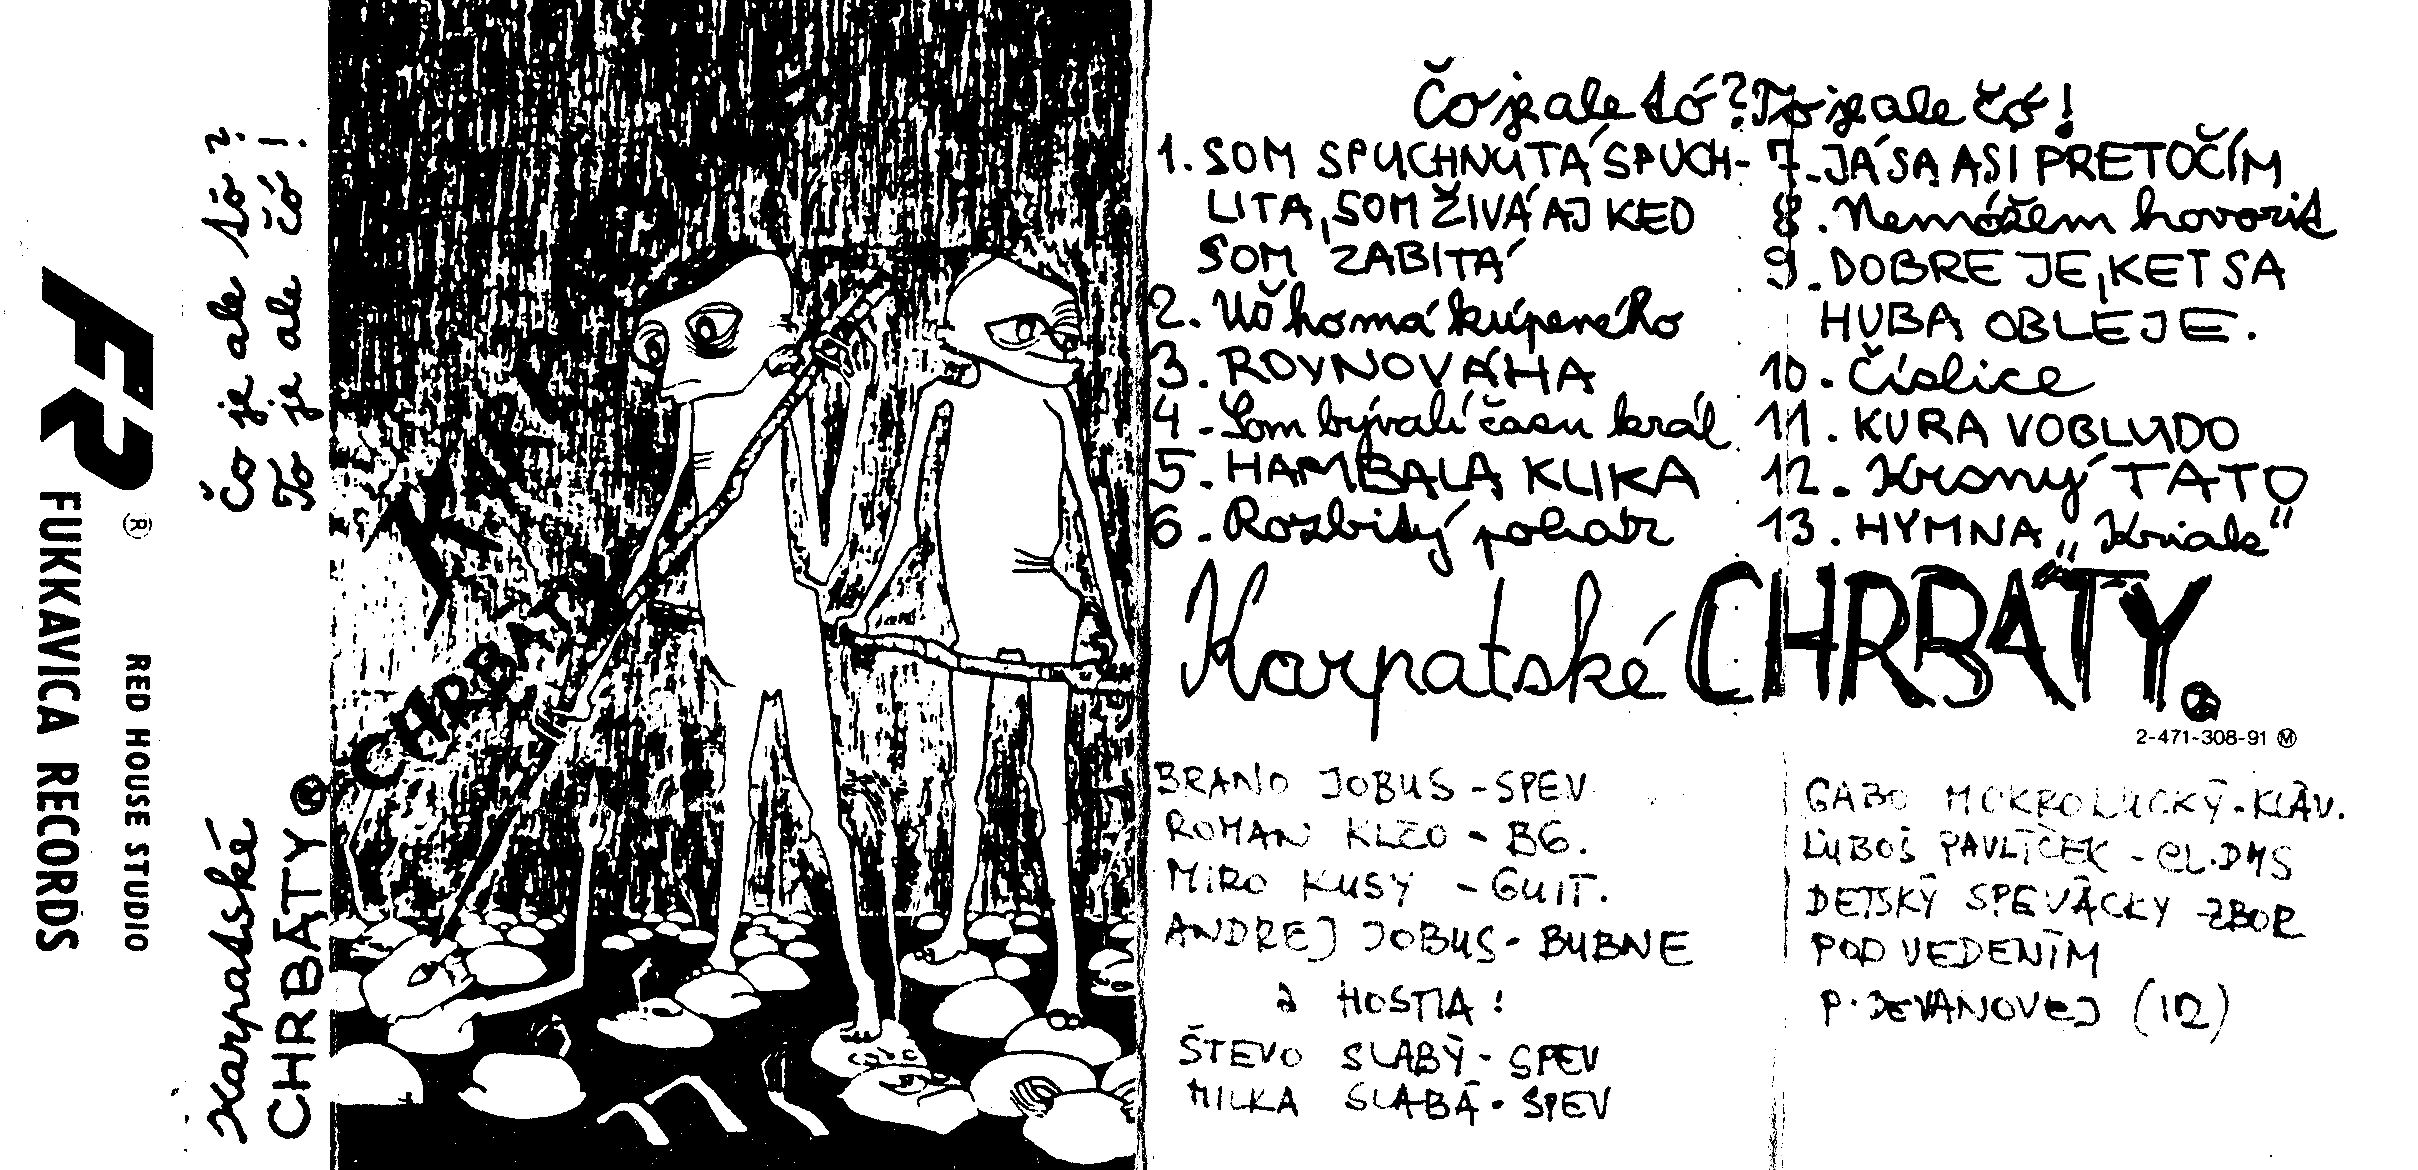 FUKKAVICA RECORDS
FR ® RED HOUSE STUDIO
Čo je ale tó?
To je ale čó!
Karpatské
CHRBÁTY ®
CHRBÁTY
Čo je ale tó? To je ale čó!
1. SOM SPUCHNUTÁ SPUCH-
LITA, SOM ŽIVÁ AJ KED
SOM ZABITÁ
2. Uš ho má kúpeného
3. ROVNOVÁHA
4. Som bývalí času král
5. HAMBALA KLIKA
6. Rozbitý pohár
7. JÁ SA ASI PRETOČÍM
8. Nemóžem hovorit
9. DOBRE JE, KET SA
HUBA OBLEJE.
10. Číslice
11. KURA VOBLUDO
12. Krsný TATO
13. HYMNA „Kriak"
Karpatské CHRBÁTY.
2-471-308-91 Ⓜ
BRAŇO JOBUS - SPEV
ROMAN KLČO - BG.
MIRO KUSÝ - GUIT.
ANDREJ JOBUS - BUBNE
a HOSTIA:
ŠTEVO SLABÝ - SPEV
MILKA SLABÁ - SPEV
GABO MOKROLUCKÝ - KLÁV.
ĽUBOŠ PAVLÍČEK - EL. DMS
DETSKÝ SPEVÁCKY ZBOR
POD VEDENÍM
P. DEVANOVEJ (12)